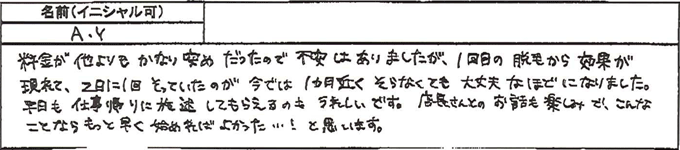 名前(イニシャル可)
A.Y
料金が他よりもかなり安めだったので不安はありましたが、1回目の脱毛から効果が
現れて、2日に1回そっていたのが今では1カ月近くそらなくても大丈夫なほどになりました。
平日も仕事帰りに施術してもらえるのもうれしいです。店長さんとのお話も楽しみで、こんな
ことならもっと早く始めればよかった…!と思います。